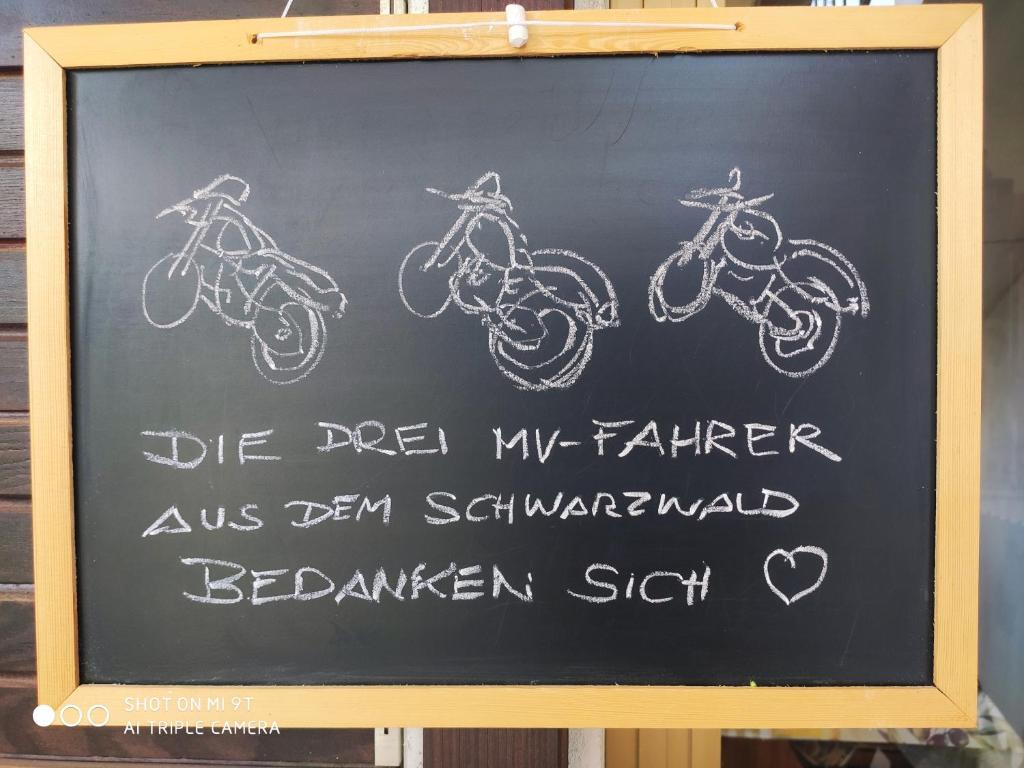 DIE DREI MV-FAHRER
AUS DEM SCHWARZWALD
BEDANKEN SICH ♡
SHOT ON MI 9T
AI TRIPLE CAMERA